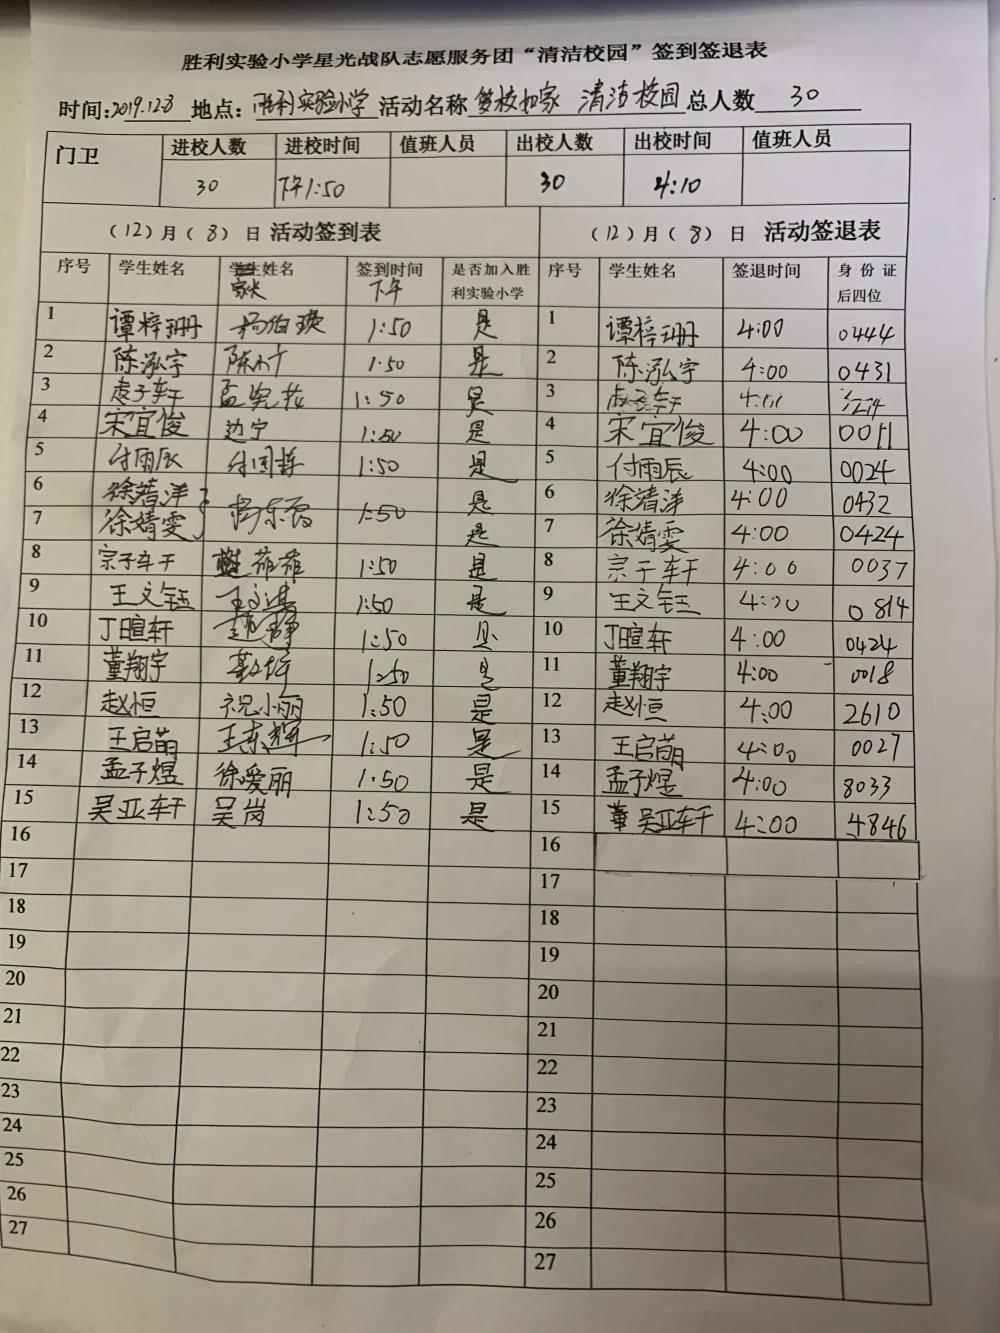 胜利实验小学星光战队志愿服务团“清洁校园”签到签退表
时间:2019.12.8 地点: 胜利实验小学 活动名称 爱校如家 清洁校园 总人数 30
门卫 进校人数 进校时间 值班人员 出校人数 出校时间 值班人员
30 下午1:50 30 4:10
(12)月(8)日 活动签到表 (12)月(8)日 活动签退表
序号 学生姓名 学生姓名 签到时间 是否加入胜利实验小学 序号 学生姓名 签退时间 身份证后四位
家长 下午
1 谭梓珊 1:50 是 1 谭梓珊 4:00 0444
2 陈泓宇 1:50 是 2 陈泓宇 4:00 0431
3 子轩 1:50 是 3 轩
4 宋宜俊 边宁 1:50 是 4 宋宜俊 4:00 0011
5 付雨辰 付国 1:50 是 5 付雨辰 4:00 0024
6 徐靖洋 是 6 徐靖洋 4:00 0432
7 徐婧雯 杨东 1:50 是 7 徐婧雯 4:00 0424
8 宗子轩 1:50 是 8 宗子轩 4:00 0037
9 王文钰 1:50 是 9 王文钰 4:00 0814
10 丁暄轩 1:50 是 10 丁暄轩 4:00 0424
11 董翔宇 1:50 是 11 董翔宇 4:00 0018
12 赵恒 祝小丽 1:50 是 12 赵恒 4:00 2610
13 王启萌 王东辉 1:50 是 13 王启萌 4:00 0027
14 孟子煜 徐爱丽 1:50 是 14 孟子煜 4:00 8033
15 吴亚轩 吴岗 1:50 是 15 董 吴亚轩 4:00 4846
16 16
17 17
18 18
19 19
20 20
21 21
22 22
23 23
24 24
25 25
26 26
27 27